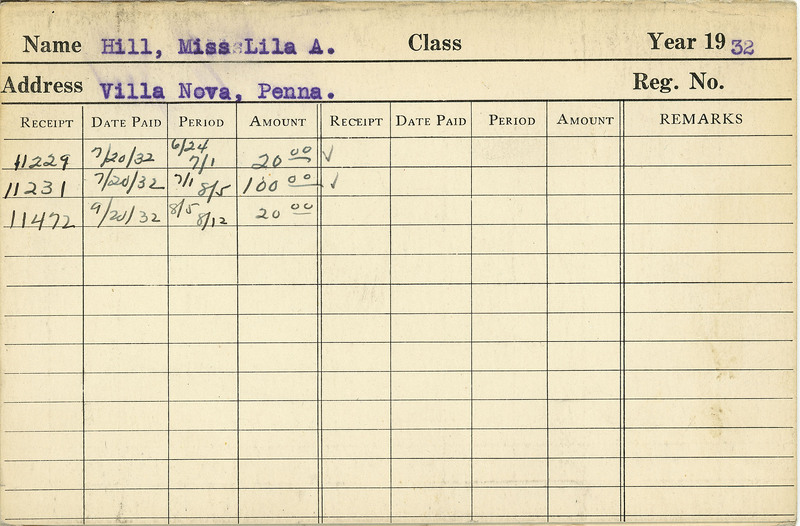 Name Hill, Miss Lila A. Class Year 19 32
Address Villa Nova, Penna. Reg. No.
RECEIPT DATE PAID PERIOD AMOUNT RECEIPT DATE PAID PERIOD AMOUNT REMARKS
11229 7/20/32 6/24 7/1 20 00 ✓
11231 7/20/32 7/1 8/5 100 00 ✓
11472 9/20/32 8/5 8/12 20 00